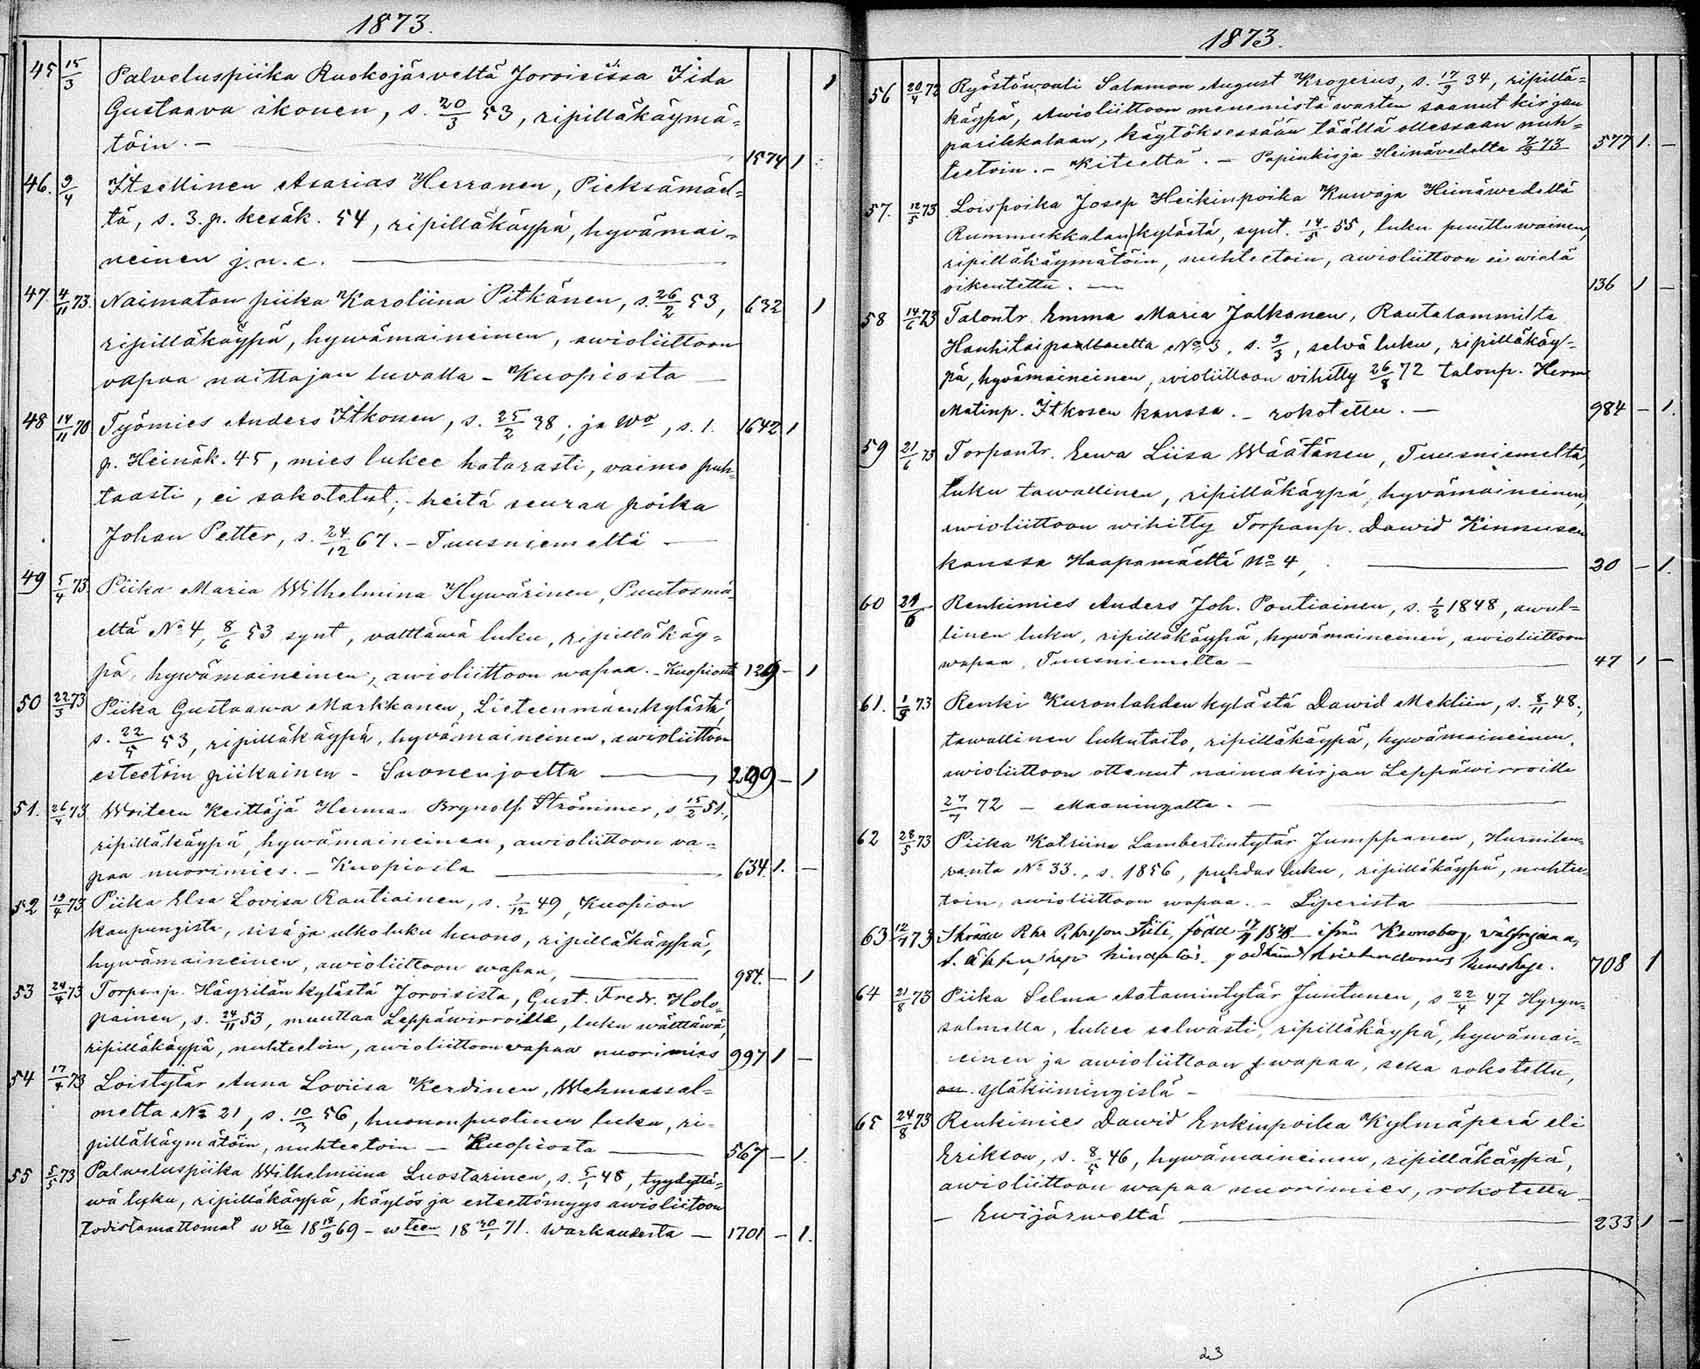 1873.
45 15/3 Palveluspiika Ruokojärveltä Joroisissa Iida 1
Gustaava ikonen, s. 20/3 53, ripilläkäymä-
töin. – 1574 1
46. 9/4 Itsellinen Asarias Herranen, Pieksämäel-
tä, s. 3. p. kesäk. 54, ripilläkäypä, hyvämai-
neinen j.n.e.
47 4/11 73. Naimaton piika Karoliina Pitkänen, s. 26/2 53, 632 1
ripilläkäypä, hywämaineinen, awioliittoon
vapaa naittajan luvalla – Kuopiosta
48 14/11 70 Työmies Anders Itkonen, s. 25/2 38, ja Wo, s. 1. 1642 1
p. Heinäk. 45, mies lukee hatarasti, vaimo puh-
taasti, ei sakotetut; heitä seuraa poika
Johan Petter, s. 24/12 67. – Tuusniemeltä –
49 5/4 73. Piika Maria Wilhelmina Hywärinen, Puutosmä-
eltä No 4, 8/6 53 synt, valttäwä luku, ripilläkäy-
pä, hywämaineinen, awioliittoon wapaa. – Kuopiosta 129 – 1
50 22/3 73 Piika Gustaawa Markkanen, Lieteenmäenkylästä
s. 22/5 53, ripilläkäypä, hyvämaineinen, awioliittoon
esteetöin piikainen – Suonenjoelta 299 – 1
51. 26/4 73 Woiteen Keittäjä Herman Brynolf Strömmer, s 15/2 51.,
ripilläkäypä, hywämaineinen, awioliittoon va-
paa nuorimies. – Kuopiosta 634 1. –
52 19/4 73 Piika Elsa Lovisa Rautiainen, s. 5/12 49, Kuopion
kaupungista, sisä ja ulkoluku huono, ripilläkäypä,
hywämaineinen, awioliittoon wapaa, 984. – 1
53 24/4 73 Torpanp. Häyrilän kylästä Joroisista, Gust. Fredr. Holo-
painen, s. 24/11 53, muuttaa Leppäwirroille, luku wälttäwä,
ripilläkäypä, nuhteetoin, awioliittoon vapaa nuorimies 997 1 –
54 17/4 73 Loistytär Anna Loviisa Kerdinen, Wehmassal-
melta No 21, s. 10/3 56, huononpuolinen luku, ri-
pilläkäymätöin, nuhteetoin – Kuopiosta 567 – 1
55 5/5 73 Palweluspiika Wilhelmiina Luostarinen, s. 5/1 48, tyydyttä-
wä luku, ripilläkäypä, käytös ja esteettömyys awioliitoon
todistamattomat w sta 18 18/9 69 – w teen 18 30/1 71. Warkaudesta – 1701 – 1.
1873.
56 20/4 72 Ryöstöwouti Salamon August Krogerius, s. 17/9 34, ripillä-
käypä, Awioliittoon menemistä warten saanut kirjan
parikkalaan, käytöksessään täällä ollessaan nuh-
teetoin. – Kiteeltä. – Papinkirja Heinävedeltä 7/3 73 577 1. –
57. 12/5 73 Loispoika Josep Heikinpoika Kuwaja Heinäwedeltä
Rummukkalan kylästä, synt. 14/5 55, luku puuttuwainen,
ripilläkäymätöin, nuhteetoin, awioliittoon ei wielä
oikeutettu. – 136 1 –
58 14/6 73 Talontr. Emma Maria Jalkanen, Rautalammilta
No 3, s. 9/3, selvä luku, ripilläkäy-
pä, hyvämaineinen, avioliittoon vihitty 26/8 72 talonp. Herm
Matinp. Itkosen kanssa. – rokotettu. – 984 – 1.
59 21/6 73 Torpantr. Eewa Liisa Wäätänen, Tuusniemeltä,
luku tawallinen, ripilläkäypä, hyvämaineinen,
awioliittoon wihitty Torpanp. Dawid Kinnusen
kanssa Haapamäeltä No 4, 20 – 1.
60 21/6 Renkimies Anders Joh. Pontiainen, s. 1/2 1848, awul-
linen luku, ripilläkäypä, hywämaineinen, awioliittoon
wapaa, Tuusniemelta – 47 1 –
61. 1/5 73 Renki Kuronlahden kylästä Dawid Meklin, s. 8/11 48,
tawallinen lukutaito, ripilläkäypä, hywämaineinen,
awioliittoon ottanut naimakirjan Leppäwirroille
27/7 72 – Maaningalta. –
62 28/5 73 Piika Katriina Lambertintytär Jumppanen,
ranta No 33., s. 1856, puhdas luku, ripilläkäypä, nuhtee-
toin, awioliittoon wapaa. – Liperista
63 12/7 73 född 17/9 1848 ifrån Kronoborg,
hinderlös, godkänd kristendoms kunskap. 708 1
64 21/8 73 Piika Selma Aatamintytär Juntunen, s 22/4 47 Hyryn-
salmella, lukee selwästi, ripilläkäypä, hywämai-
neinen ja awioliittoon wapaa, seka rokotettu,
Yläkiimingistä –
65 24/8 73 Renkimies Dawid Erkinpoika Kylmäperä eli
Erikson, s. 8/5 46, hywämaineinen, ripilläkäypä,
awioliittoon wapaa nuorimies, rokotettu
– Ewijärweltä 233 1 –
23